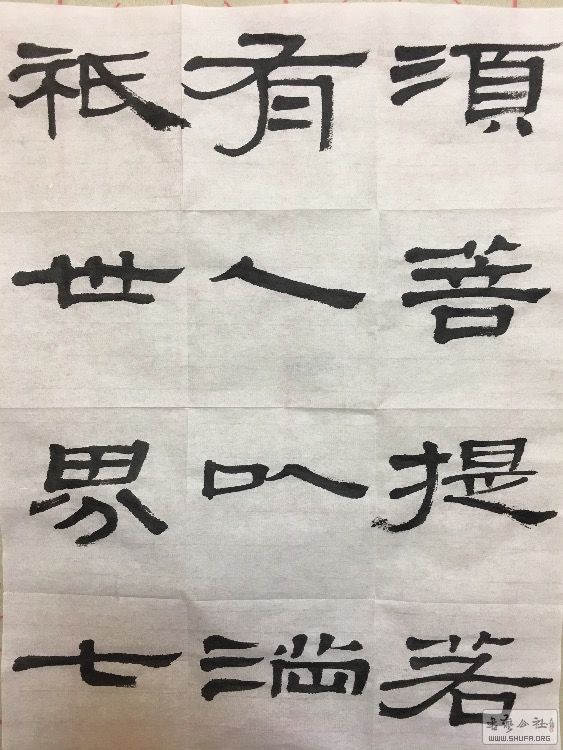 須菩提若
有人以滿
祇世界七
公社
WWW.SHUFA.ORG